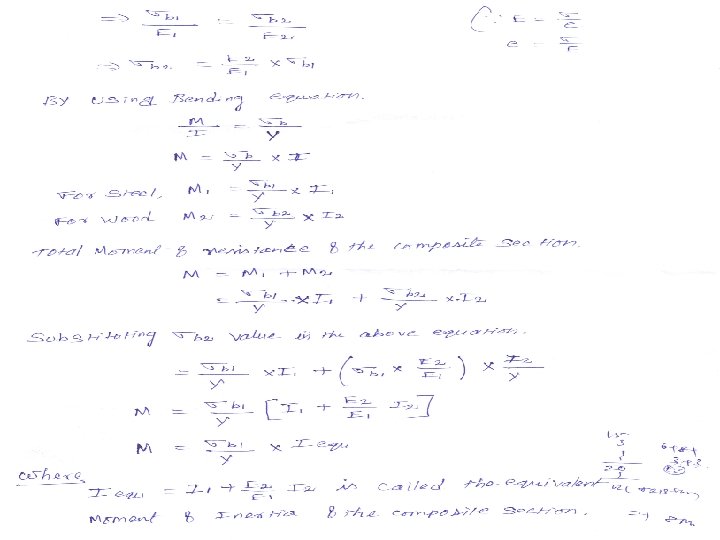 => σb1 / E1 = σb2 / E2 (∵ E = σ/e
e = σ/E
=> σb2 = E2/E1 × σb1
By using Bending equation.
M/I = σb/y
M = σb/y × I
For Steel, M1 = σb1/y × I1
For Wood M2 = σb2/y × I2
Total Moment of resistance of the composite section.
M = M1 + M2
= σb1/y × I1 + σb2/y × I2
Substituting σb2 value in the above equation.
= σb1/y × I1 + (σb1 × E2/E1) × I2/y
M = σb1/y [I1 + E2/E1 I2]
M = σb1/y × I equ
where
I equ = I1 + E2/E1 I2 is called the equivalent
Moment of Inertia of the composite section.